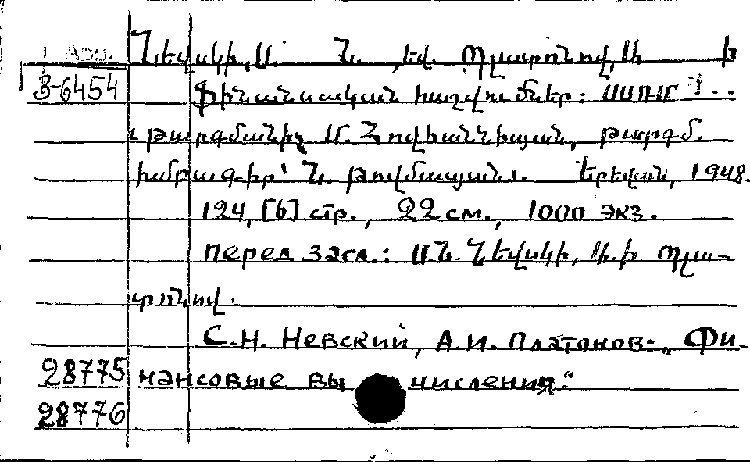 Նեվսկի, Ս. Ն., եվ Պլատոնով, Ա. Ի
3-6454 Ֆինանսական հաշվումներ:
թարգմանիչ Մ. Հովհաննիսյան, թարգմ.
խմբագիր՝ Ն. Թովմասյան. Երեվան, 1948.
124, [6] стр., 22 см., 1000 экз.
перед загл.: Ս. Ն. Նեվսկի, Ա. Ի. Պլա-
տոնով.
С. Н. Невский, А. И. Платонов - „Фи-
28775 нансовые вычисления“
28776